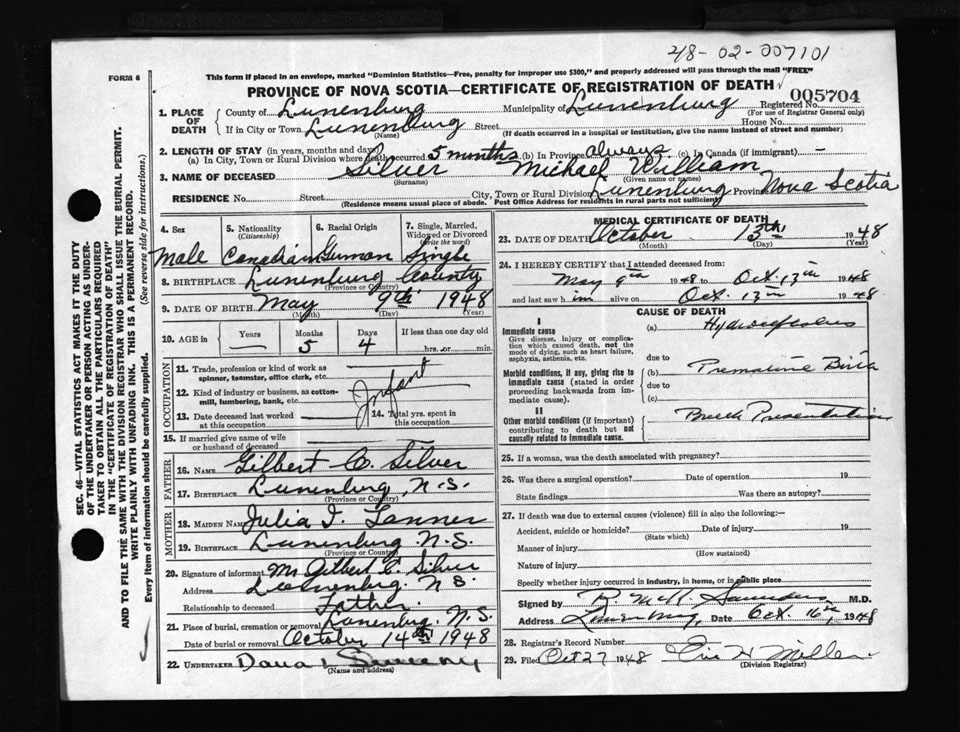 48-02-007101
FORM 6
This form if placed in an envelope, marked "Dominion Statistics—Free, penalty for improper use $300," and properly addressed will pass through the mail "FREE"
PROVINCE OF NOVA SCOTIA—CERTIFICATE OF REGISTRATION OF DEATH
005704
1. PLACE OF DEATH
County of Lunenburg Municipality of Lunenburg Registered No.
(For use of Registrar General only)
If in City or Town Lunenburg Street House No.
(Name) (If death occurred in a hospital or institution, give the name instead of street and number)
2. LENGTH OF STAY (in years, months and days)
(a) In City, Town or Rural Division where death occurred 5 months (b) In Province always (c) In Canada (if immigrant) —
3. NAME OF DECEASED Silver Michael William
(Surname) (Given name or names)
RESIDENCE No. Street City, Town or Rural Division Lunenburg Province Nova Scotia
(Residence means usual place of abode. Post Office Address for residents in rural parts not sufficient)
SEC. 46—VITAL STATISTICS ACT MAKES IT THE DUTY
OF THE UNDERTAKER OR PERSON ACTING AS UNDER-
TAKER TO OBTAIN ALL THE PARTICULARS REQUIRED
IN THE "CERTIFICATE OF REGISTRATION OF DEATH"
AND TO FILE THE SAME WITH THE DIVISION REGISTRAR WHO SHALL ISSUE THE BURIAL PERMIT.
WRITE PLAINLY WITH UNFADING INK. THIS IS A PERMANENT RECORD.
Every item of information should be carefully supplied. (See reverse side for instructions.)
4. Sex 5. Nationality (Citizenship) 6. Racial Origin 7. Single, Married, Widowed or Divorced (write the word)
Male Canadian German Single
8. BIRTHPLACE Lunenburg County
(Province or Country)
9. DATE OF BIRTH May 9th 1948
(Month) (Day) (Year)
10. AGE in Years Months Days If less than one day old
— 5 4 hrs. or min.
OCCUPATION
11. Trade, profession or kind of work as
spinner, teamster, office clerk, etc.
12. Kind of industry or business, as cotton-
mill, lumbering, bank, etc.
Infant
13. Date deceased last worked
at this occupation
14. Total yrs. spent in
this occupation
15. If married give name of wife
or husband of deceased
FATHER
16. NAME Gilbert C. Silver
17. BIRTHPLACE Lunenburg, N.S.
(Province or Country)
MOTHER
18. MAIDEN NAME Julia I. Tanner
19. BIRTHPLACE Lunenburg N.S.
(Province or Country)
20. Signature of informant Mr Gilbert C. Silver
Address Lunenburg. N S.
Relationship to deceased Father.
21. Place of burial, cremation or removal Lunenburg. N.S.
Date of burial or removal October 14th 1948
22. UNDERTAKER Dana L Sweeny
(Name and address)
MEDICAL CERTIFICATE OF DEATH
23. DATE OF DEATH October 13th 1948
(Month) (Day) (Year)
24. I HEREBY CERTIFY that I attended deceased from:
May 9th 1948 to Oct. 13th 1948
and last saw him alive on Oct. 13th 1948
CAUSE OF DEATH
I
Immediate cause
Give disease, injury or complica-
tion which caused death, not the
mode of dying, such as heart failure,
asphyxia, asthenia, etc.
(a) Hydrocephalus
due to
Morbid conditions, if any, giving rise to
immediate cause (stated in order
proceeding backwards from im-
mediate cause).
(b) Premature Birth
due to
(c)
II
Other morbid conditions (if important)
contributing to death but not
causally related to immediate cause.
Breech Presentation
25. If a woman, was the death associated with pregnancy?
26. Was there a surgical operation? Date of operation 19
State findings Was there an autopsy?
27. If death was due to external causes (violence) fill in also the following:—
Accident, suicide or homicide? Date of injury 19
(State which)
Manner of injury
(How sustained)
Nature of injury
Specify whether injury occurred in industry, in home, or in public place
Signed by R. McK. Saunders M.D.
Address Lunenburg, Date Oct. 16th, 1948
28. Registrar's Record Number
29. Filed Oct 27 1948 Eric H Miller.
(Division Registrar)